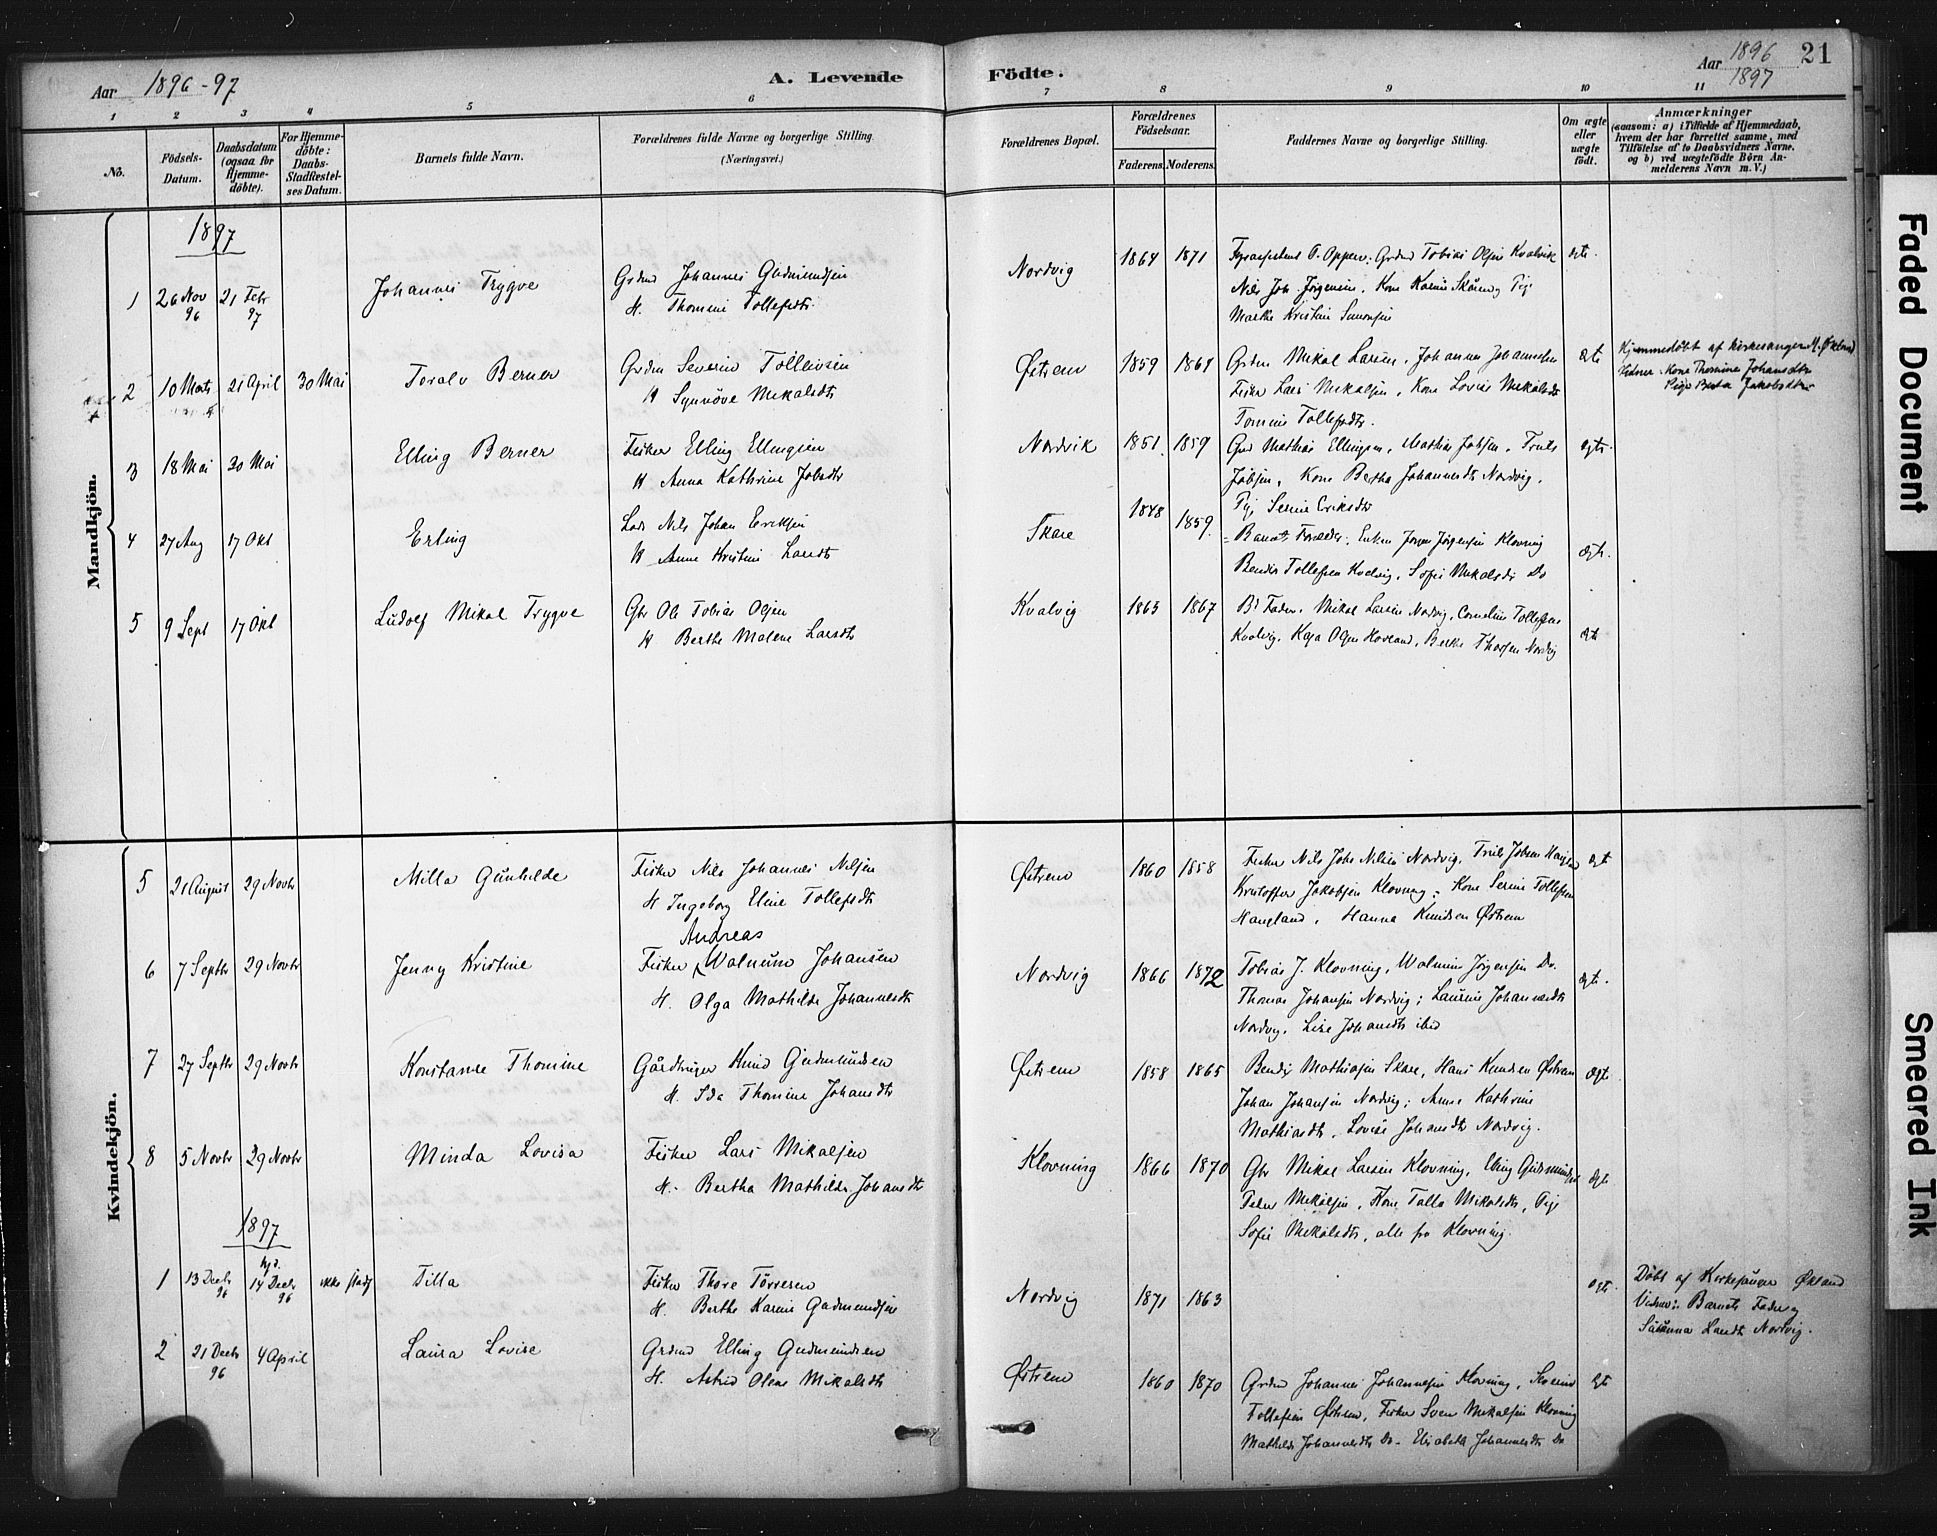 Aar 1896-97
A. Levende Födte.
Aar 1896 1897
21
1 2 3 4 5 6 7 8 9 10 11
No.
Födsels-Datum.
Daabsdatum (ogsaa for Hjemme-döbte).
For Hjemme-döbte: Daabs-Stadfestel-ses Datum.
Barnets fulde Navn.
Forældrenes fulde Navne og borgerlige Stilling. (Næringsvei.)
Forældrenes Bopæl.
Forældrenes Födselsaar.
Faderens. Moderens.
Faddernes Navne og borgerlige Stilling.
Om ægte eller uægte födt.
Anmærkninger
(saasom: a) i Tilfælde af Hjemmedaab, hvem der har forrettet samme, med Tilföielse af to Daabsvidners Navne, og b) ved uægtefödte Börn An-melderens Navn m.V.)
Mandkjön.
1897
1 26 Nov 96 21 Febr 97 Johannes Trygve
Grdmd Johannes Gudmundsen
H. Thomine Tollefsdtr
Nordvig 1864 1871
Grdmd Tobias Olsen Kvalvik ægte.
Nils Joh. Jörgensen, Kone Karine
Marthe Kristine Simonsen
2 10 Marts 21 April 30 Mai Toralv Berner
Grdm Severin Tolleivsen
H Synnöve Mikalsdtr
Östrem 1859 1861
Grdm Mikal Larsen, Johannes Johannesen ægte
Fisker Lars Mikalsen, Kone Lovise Mikalsdtr
Tomine Tollefsdtr.
Hjemmedöbt af kirkesanger M. Økland
Vidner: Kone Thomine Johansdtr
Pige Berta Jakobsdtr
3 18 Mai 30 Mai Elling Berner
Fisker Elling Ellingsen
H Anna Kathrine Jobsdtr
Nordvik 1851 1859
Grd Mathias Ellingsen, Mathias Jobsen, Truls ægte.
Jobsen, Kone Bertha Johannesdtr Nordvig,
Pig. Serine Eriksdtr
4 27 Aug 17 Okt Erling
Lods Nils Johan Eriksen
H Anne Kristine Larsdtr
Skare 1848 1859.
Barnets Forældre, Enkem Jörgensen Klovning
Bendix Tollefsen Kvalvig, Sofie Mikalsdtr Do ægte.
5 9 Sept 17 Okt Ludolf Mikal Trygve
Gbr Ole Tobias Olsen
H Berthe Malene Larsdtr
Kvalvig 1863 1867
Bs Fader, Mikal Larsen Nordvig, Cornelius Tollefsen
Kvalvig, Kaja Olsen Hovland, Berthe Thorsen Nordvig ægte
Kvindekjön.
5 21 August 29 Novbr Milla Gunhilde
Fisker Nils Johannes Nilsen
H Ingeborg Eline Tollefsdtr
Östrem 1860 1858
Fisker Nils Johs Nilsen Nordvig, Truls Jobsen ægt
Kristoffer Jakobsen Klovning; Kone Serine Tollefsen
Haugland, Hanna Knudsen Östrem
6 7 Septbr 29 Novbr Jenny Kristine
Andreas
Fisker Walnum Johansen
H. Olga Mathilde Johannesdtr
Nordvig 1866 1872
Tobias J. Klovning, Walnum Jörgensen Do. ægt.
Thomas Johansen Nordvig; Laurine Johannesdtr
Nordvig, Lise Johansdtr ibid
7 27 Septbr 29 Novbr Konstanse Thomine
Gårdbruger Knud Gudmundsen
H. Ida Thomine Johansdtr
Östrem 1858 1865
Bendix Mathiasen Skare, Hans Knudsen Östrem ægte
Johan Johansen Nordvig; Anne Kathrine
Mathiasdtr, Lovise Johansdtr Nordvig.
8 5 Novbr 29 Novbr Minda Lovisa
Fisker Lars Mikalsen
H. Bertha Mathilde Johansdtr
Klovning 1866 1870
Gbr Mikal Larsen Klovning, Gudmundsen ægte
Peder Mikalsen, Kone Talla Mikalsdtr, Pige
Sofie Mikalsdtr, alle fra Klovning.
1897
1 13 Decbr 96 hjd. 14 Decbr 96 ikke stadf Tilla
Fisker Thore Törresen
H. Berthe Karine Gudmundsen
Nordvig 1871 1863 ægte.
Döbt af Kirkesanger Økland
Vidner: Barnets Fader og
Susanna Larsdtr Nordvig.
2 21 Decbr 96 4 April Laura Lovise
Grdmd Elling Gudmundsen
H. Astrid Olene Mikalsdtr
Östrem 1860 1870
Grdm Johannes Johannesen Klovning, Severin ægte
Tollefsen Östrem, Fisker Sven Mikalsen Klovning
Mathilde Johannesdtr Do. Elisabeth Johannesdtr Do
Faded Document
Smeared Ink